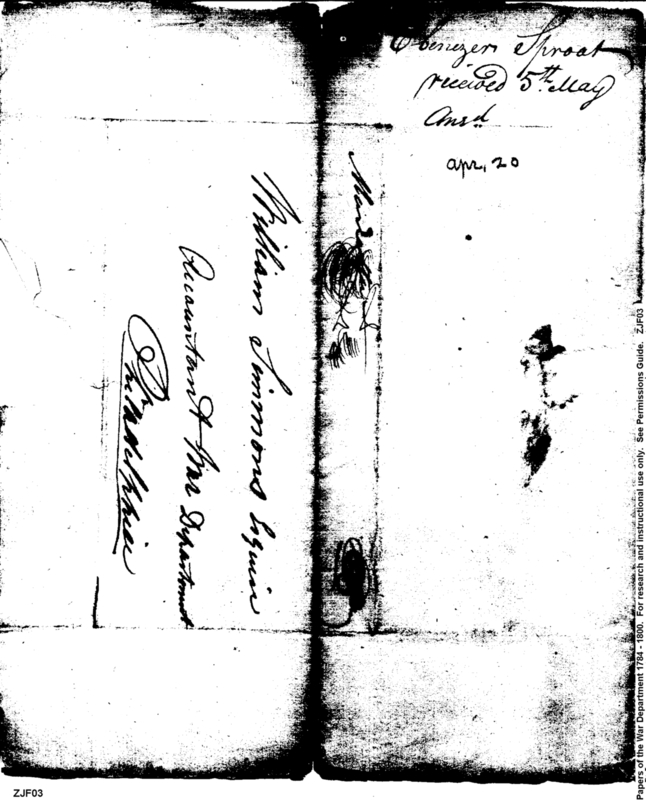 Ebenezer Sproat
received 5th May
Ansd
apr, 20
William Simmons Esquire
Accountant War Department
Philadelphia
Papers of the War Department 1784 - 1800. For research and instructional use only. See Permissions Guide. ZJF03
ZJF03